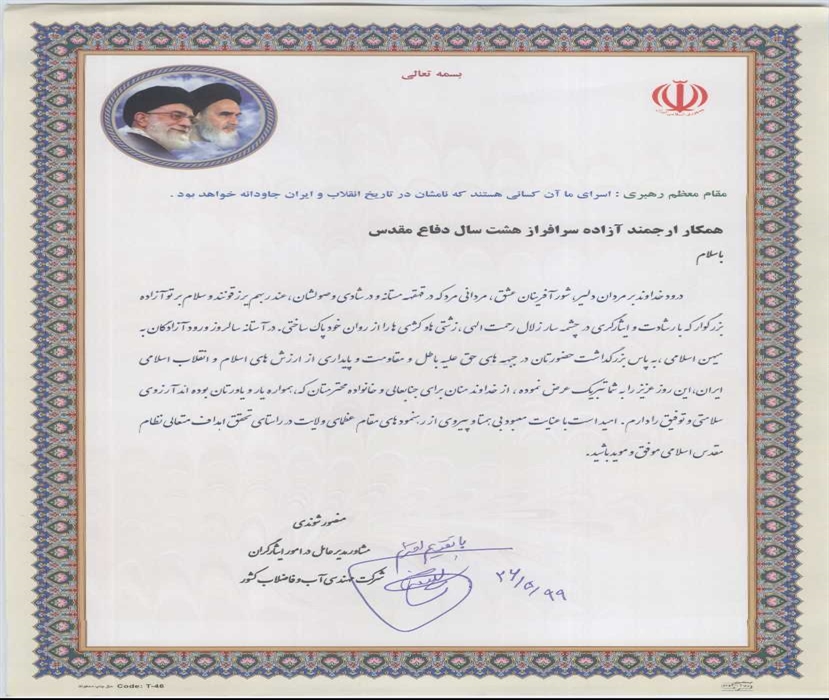 بسمه تعالی
جمهوری اسلامی ایران
مقام معظم رهبری : اسرای ما آن کسانی هستند که نامشان در تاریخ انقلاب و ایران جاودانه خواهد بود .
همکار ارجمند آزاده سرافراز هشت سال دفاع مقدس
باسلام
درود خداوند بر مردان دلیر، شور آفرینان عشق، مردانی مرد که در قهقهه مستانه و در شادی وصولشان، عند ربهم یرزقونند و سلام بر تو آزاده
بزرگوار که با رشادت و ایثارگری در چشمه سار زلال رحمت الهی، زشتی ها و کژی ها را از روان خود پاک ساختی. در آستانه سالروز ورود آزادگان به
میهن اسلامی، به پاس بزرگداشت حضورتان در جبهه های حق علیه باطل و مقاومت و پایداری از ارزش های اسلام و انقلاب اسلامی
ایران، این روز عزیز را به شما تبریک عرض نموده ، از خداوند منان برای جنابعالی و خانواده محترمتان که، همواره یار و یاورتان بوده اند آرزوی
سلامتی و توفیق را دارم. امید است با عنایت معبود بی همتا و پیروی از رهنمودهای مقام عظمای ولایت در راستای تحقق اهداف متعالی نظام
مقدس اسلامی موفق و موید باشید.
منصور شوندی
مشاور مدیرعامل در امور ایثارگران
شرکت مهندسی آب و فاضلاب کشور
با تقدیم احترام
۲۶/۵/۹۹
Code: T-46